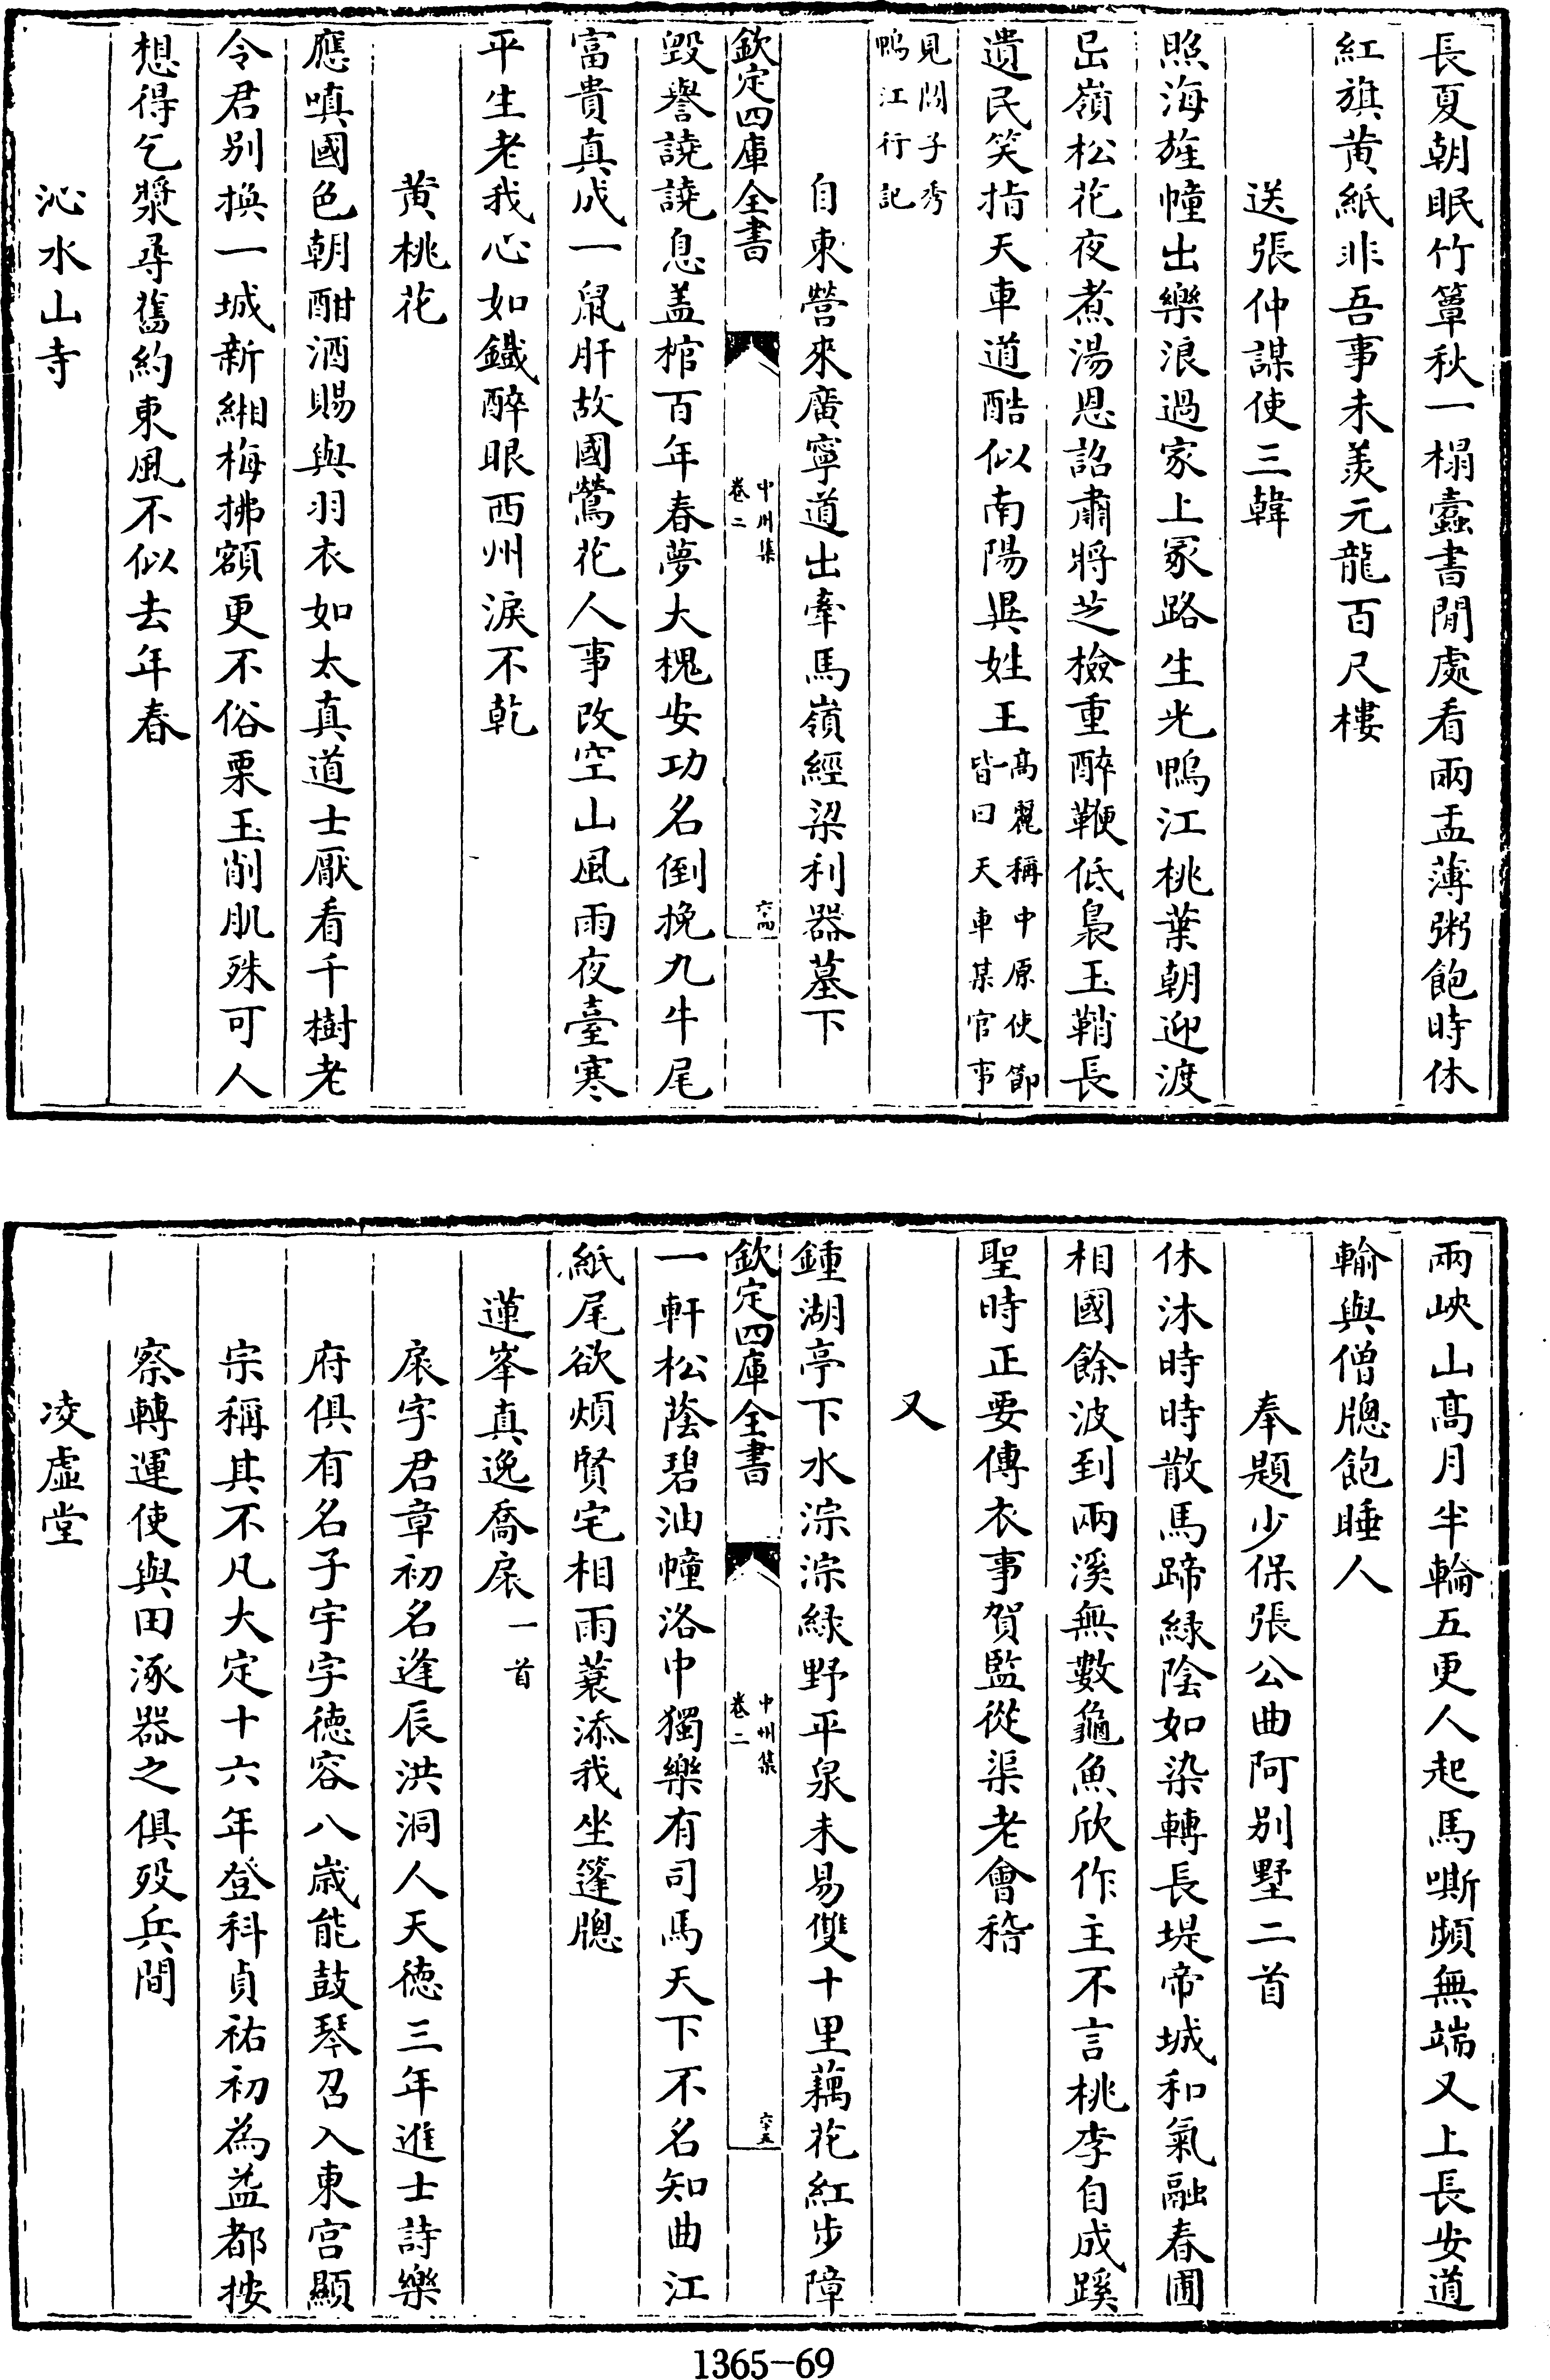 長夏朝眠竹簟秋一榻蠹書閒處看兩盂薄粥飽時休
紅旗黄紙非吾事未羡元龍百尺樓
送張仲謀使三韓
照海旌幢出樂浪過家上冢路生光鴨江桃葉朝迎渡
岊嶺松花夜煮湯恩詔肅將芝檢重醉鞭低裊玉鞘長
遺民笑指天車道酷似南陽異姓王高麗稱中原使節一
皆曰天車某官事
見閻子秀
鴨江行記
自東營來廣寧道出牽馬嶺經梁利器墓下
欽定四庫全書
中州集
卷二
六十四
毀譽譊譊息盖棺百年春夢大槐安功名倒挽九牛尾
富貴真成一鼠肝故國鶯花人事改空山風雨夜臺寒
平生老我心如鐡醉眼西州淚不乾
黄桃花
應嗔國色朝酣酒賜與羽衣如太真道士厭看千樹老
令君别換一城新緗梅拂額更不俗栗玉削肌殊可人
想得乞漿尋舊約東風不似去年春
沁水山寺
兩峽山髙月半輪五更人起馬嘶頻無端又上長安道
輸與僧牕飽睡人
奉題少保張公曲阿别墅二首
休沐時時散馬蹄緑陰如染轉長堤帝城和氣融春圃
相國餘波到兩溪無數龜魚欣作主不言桃李自成蹊
聖時正要傳衣事賀監從渠老會稽
又
鍾湖亭下水淙淙緑野平泉未易雙十里藕花紅步障
欽定四庫全書
中州集
卷二
六十五
一軒松蔭碧油幢洛中獨樂有司馬天下不名知曲江
紙尾欲煩賢宅相雨蓑添我坐篷牕
蓮峯真逸喬扆一首
扆字君章初名逢辰洪洞人天德三年進士詩樂
府俱有名子宇字徳容八歲能鼓琴召入東宫顯
宗稱其不凡大定十六年登科貞祐初為益都按
察轉運使與田涿器之俱殁兵間
凌虛堂
1365-69